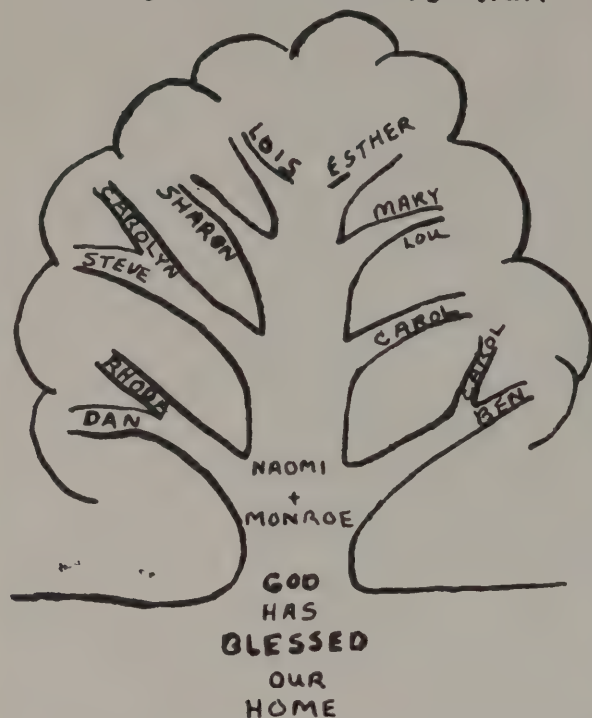 LOIS
ESTHER
SHARON
CAROLYN
STEVE
MARY
LOU
CAROL
RHODA
DAN
CAROL
BEN
NAOMI
+
MONROE
GOD
HAS
BLESSED
OUR
HOME